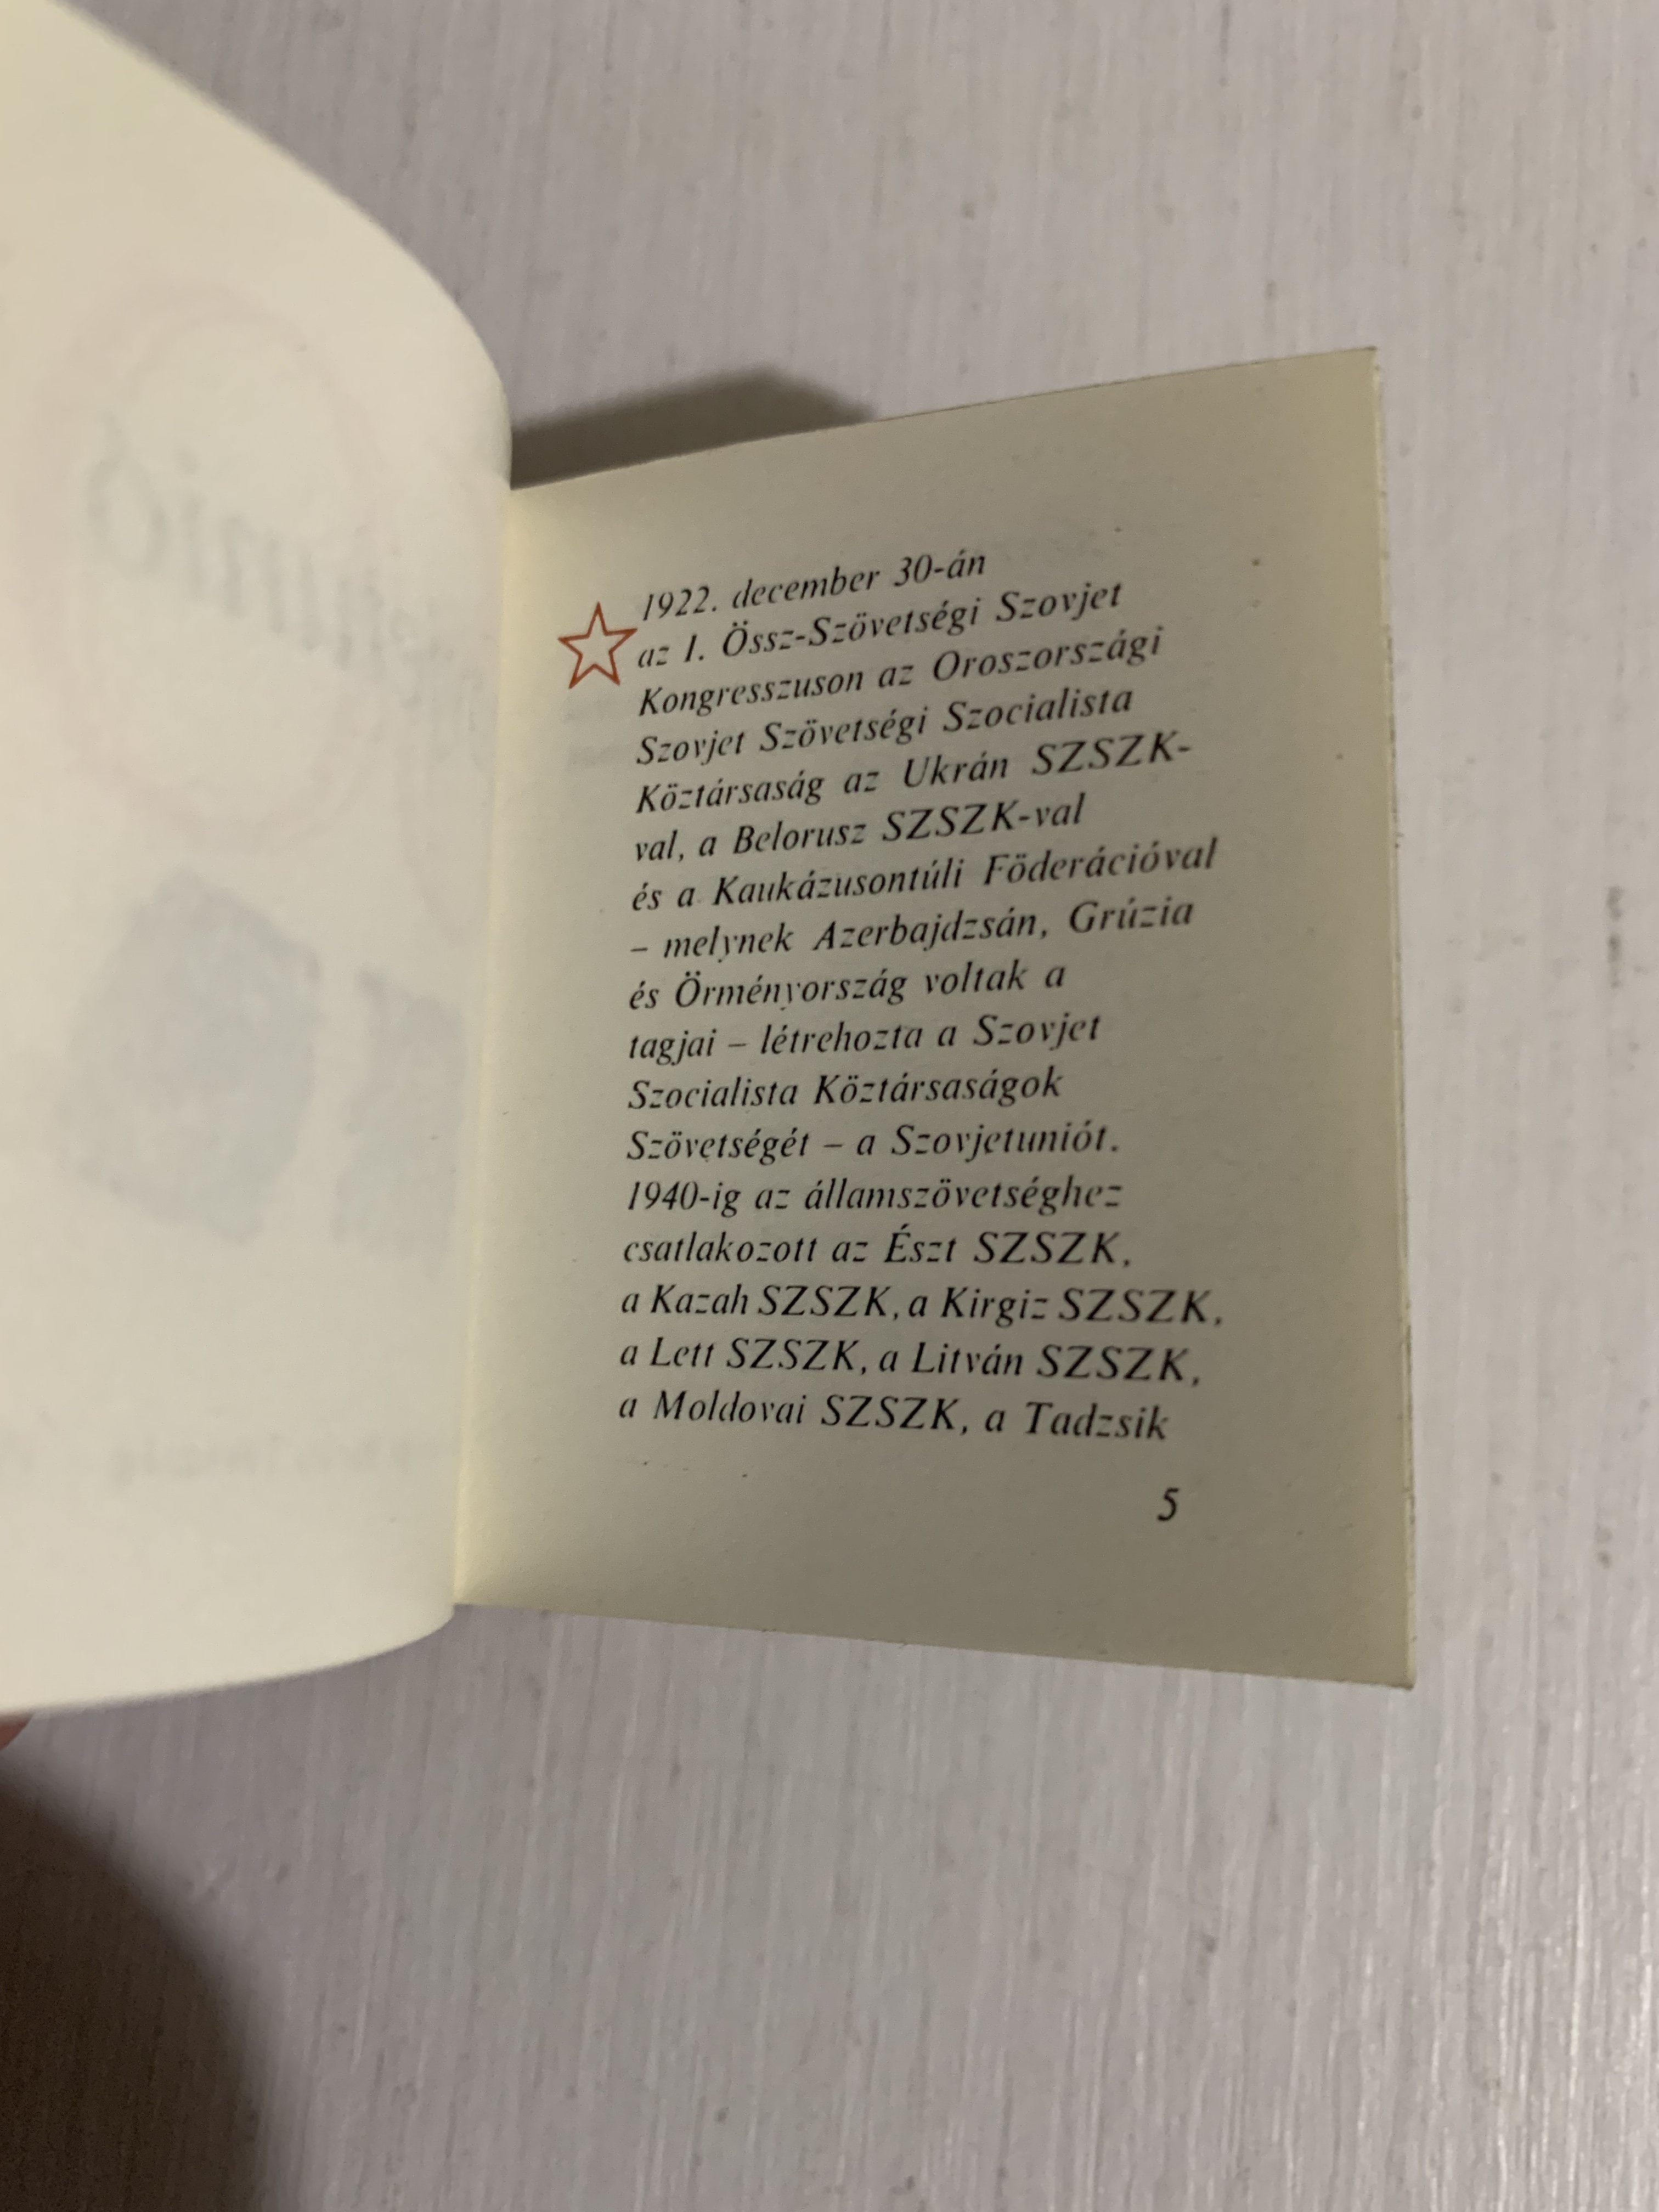 1922. december 30-án
az I. Össz-Szövetségi Szovjet
Kongresszuson az Oroszországi
Szovjet Szövetségi Szocialista
Köztársaság az Ukrán SZSZK-
val, a Belorusz SZSZK-val
és a Kaukázusontúli Föderációval
– melynek Azerbajdzsán, Grúzia
és Örményország voltak a
tagjai – létrehozta a Szovjet
Szocialista Köztársaságok
Szövetségét – a Szovjetuniót.
1940-ig az államszövetséghez
csatlakozott az Észt SZSZK,
a Kazah SZSZK, a Kirgiz SZSZK,
a Lett SZSZK, a Litván SZSZK,
a Moldovai SZSZK, a Tadzsik
5